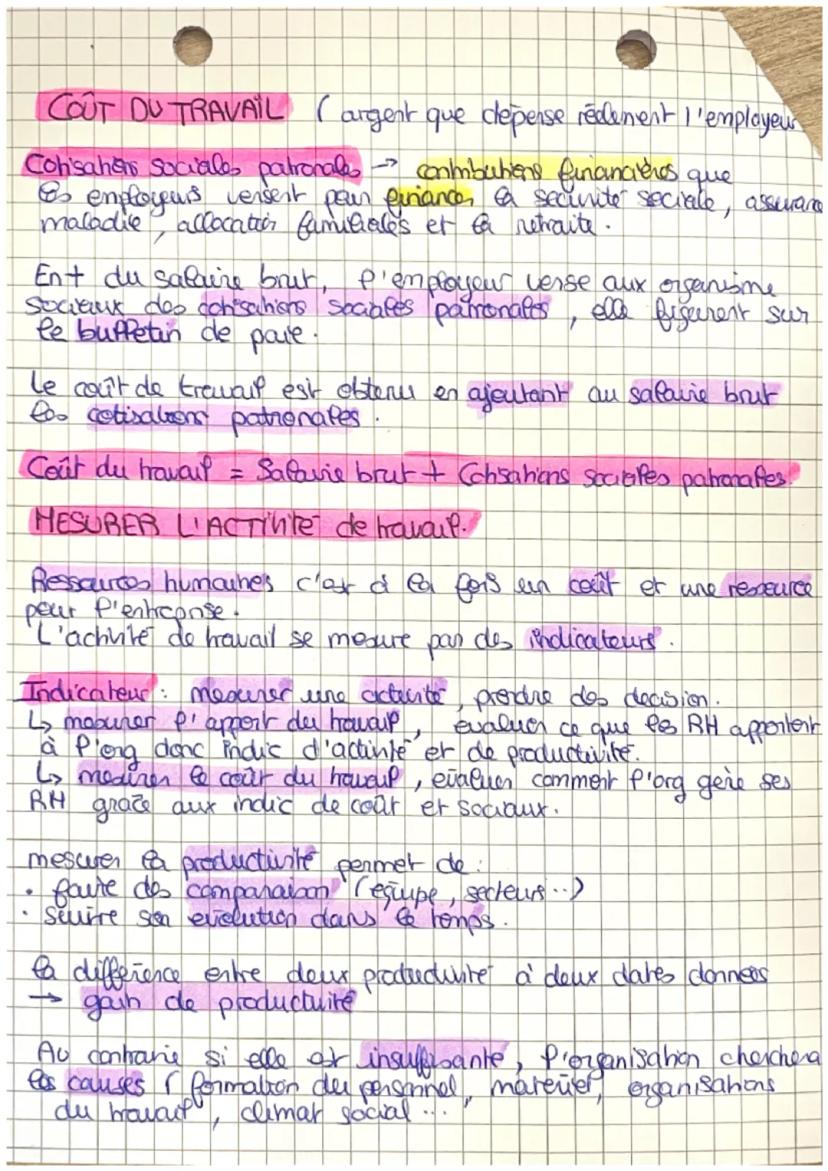 COÛT DU TRAVAIL ( argent que dépense réelement l'employeur
Cotisations sociales patronales → contributions financières que
les employeurs versent pour financer la sécurité sociale, assurance
maladie, allocation familiales et la retraite.
En + du salaire brut, l'employeur verse aux organisme
sociaux des cotisations sociales patronales, elle figurent sur
le bulletin de paie.
Le coût de travail est obtenu en ajoutant au salaire brut
les cotisations patronales.
Coût du travail = Salaire brut + Cotisations sociales patronales.
MESURER L'ACTIVITÉ de travail.
Ressources humaines c'est à la fois un coût et une ressource
pour l'entreprise.
L'activité de travail se mesure par des indicateurs.
Indicateur : mesurer une activité, prendre des decision.
↳ mesurer l'apport du travail, évaluer ce que les RH apportent
à l'org donc indic d'activité et de productivité.
↳ mesurer le coût du travail, évaluer comment l'org gère ses
RH grace aux indic de coût et sociaux.
mesurer la productivité permet de :
• faire des comparaison (équipe, secteurs...)
• suivre son évolution dans le temps.
la différence entre deux productivité à deux dates données
→ gain de productivité
Au contraire si elle est insuffisante, l'organisation cherchera
les causes ( formation du personnel, matériel, organisations
du travail, climat social ...